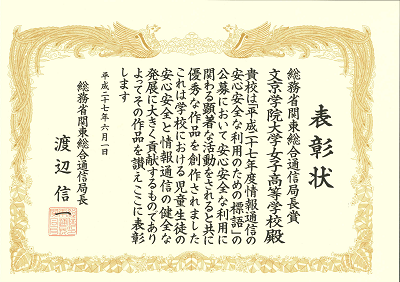 表彰状
総務省関東総合通信局長賞
文京学院大学女子高等学校殿
貴校は平成二十七年度情報通信の
安心安全な利用のための標語」の
公募において安心安全な利用に
関わる顕著な活動をされると共に
優秀な作品を創作されました
これは学校における児童生徒の
安心安全と情報通信の健全な
発展に大きく貢献するものであり
よってその作品を讃えここに表彰
します
平成二十七年六月一日
総務省関東総合通信局長
渡辺信一